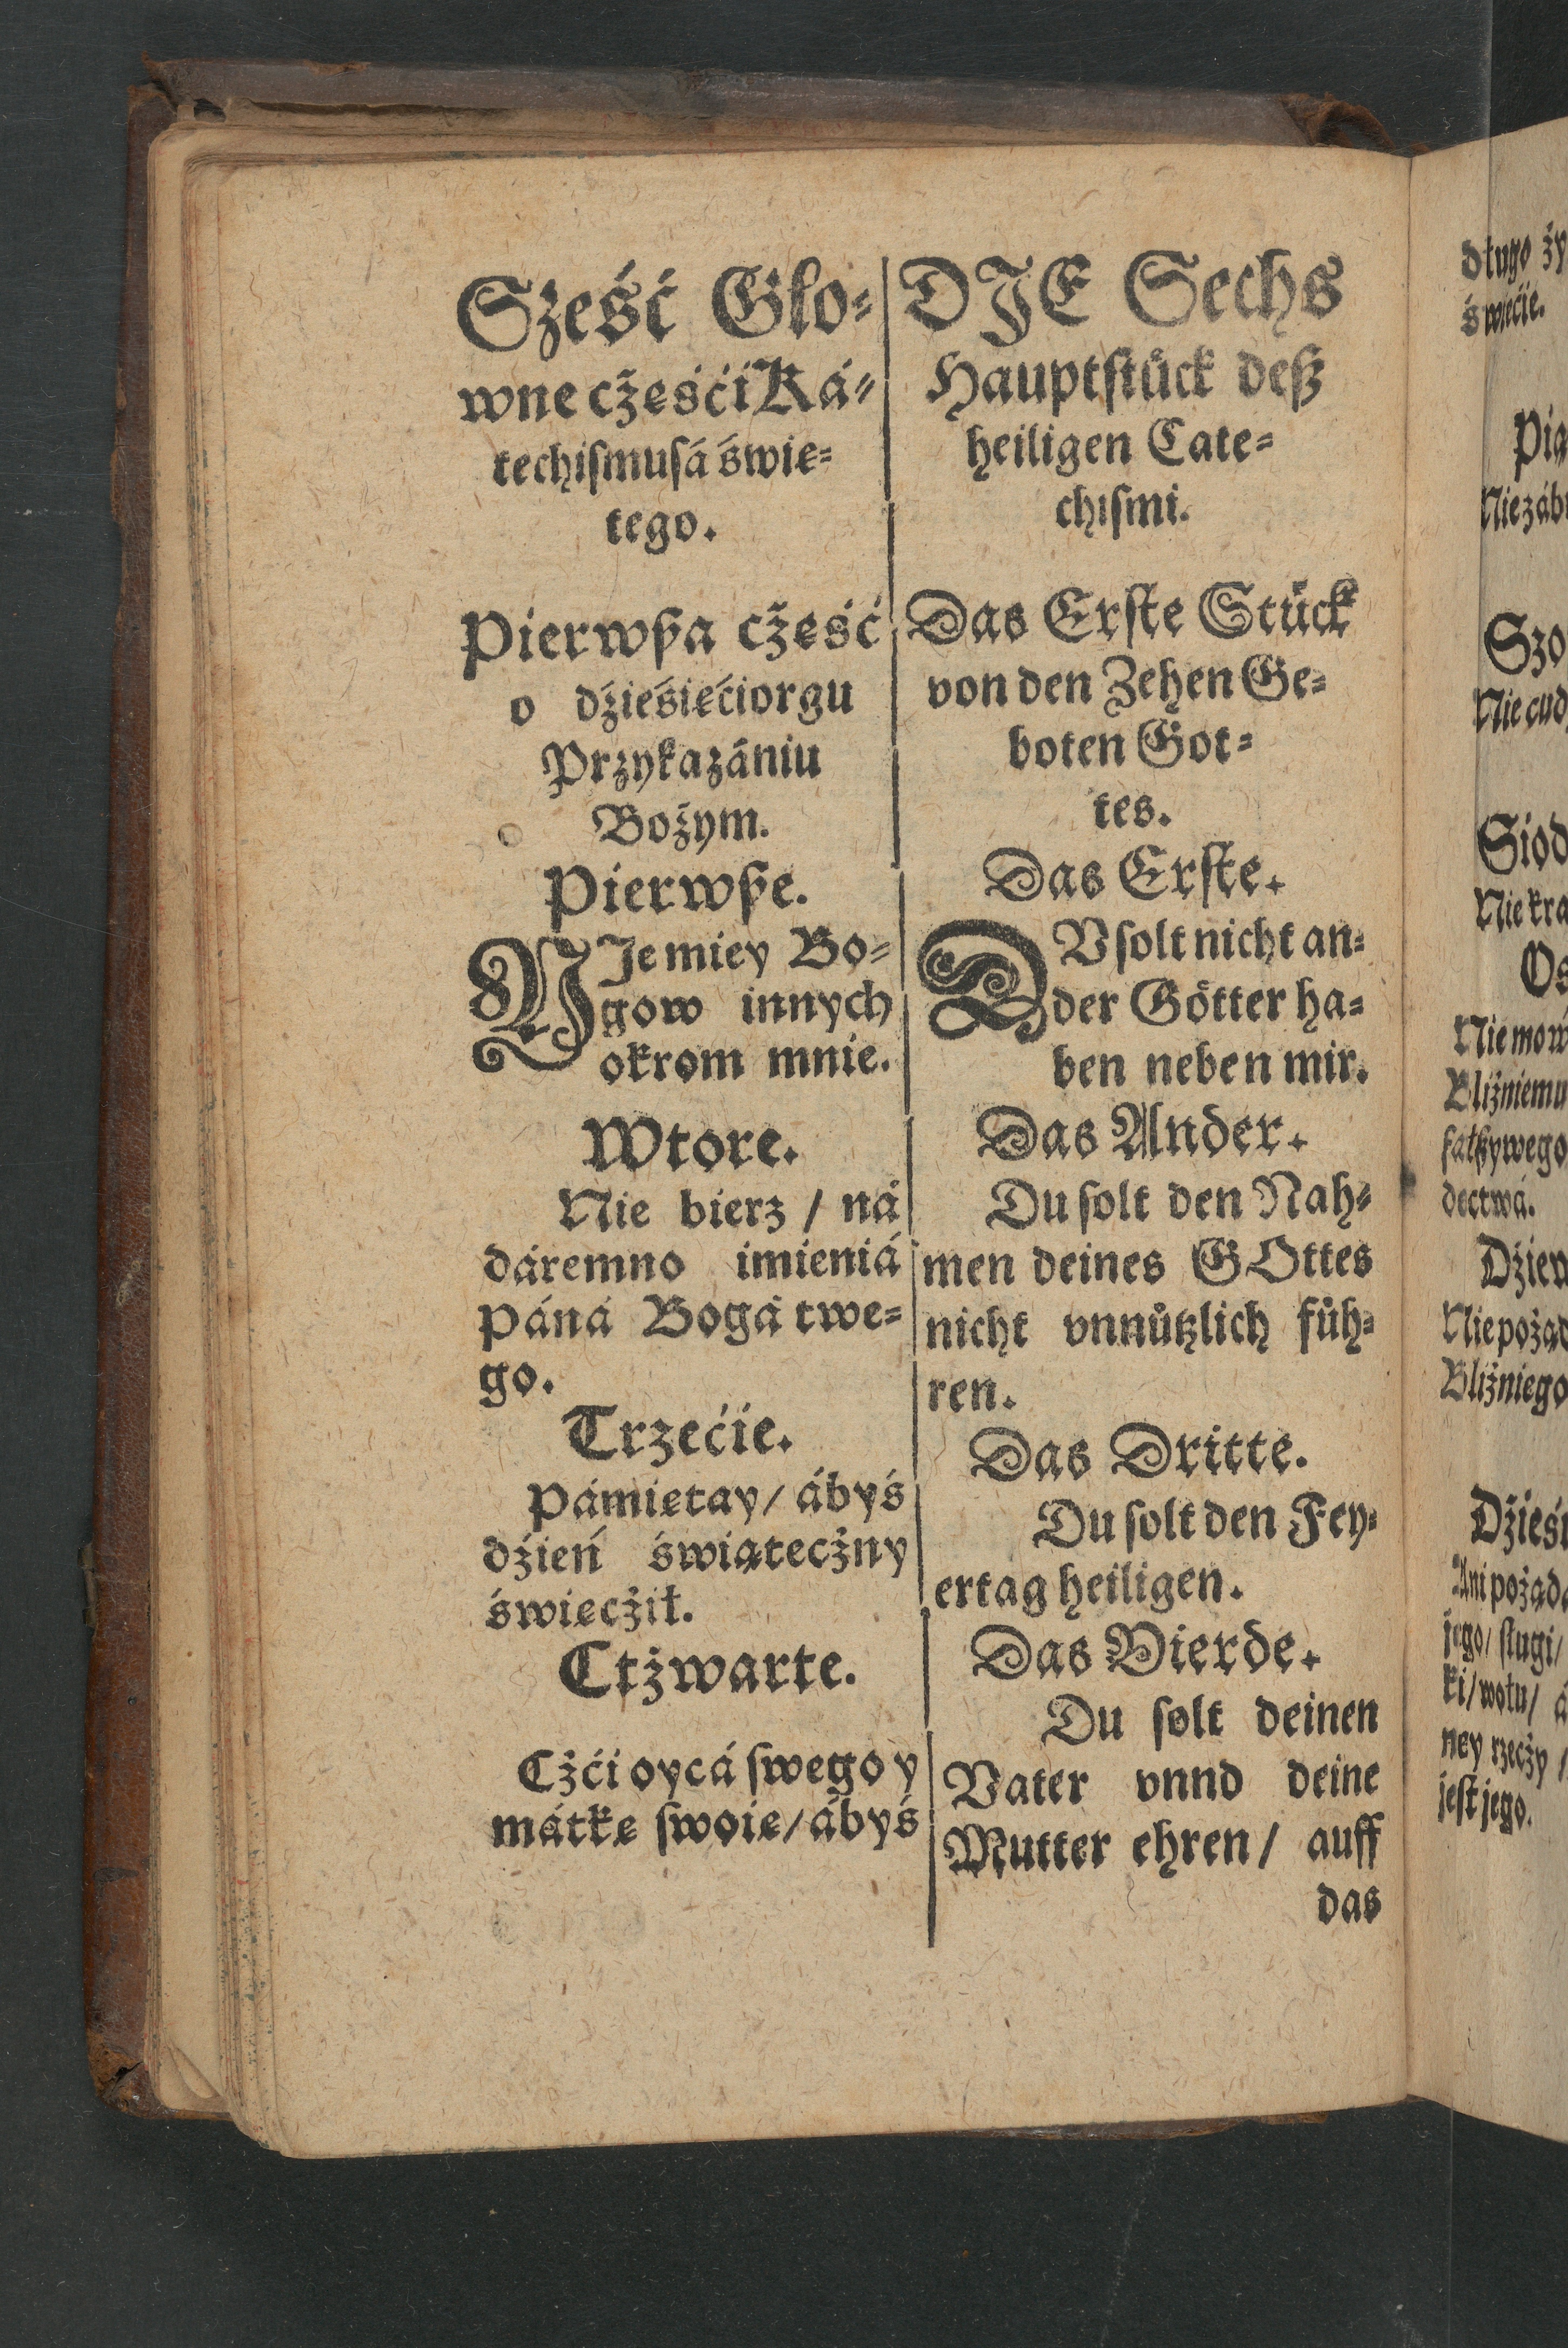 Sżeść Glo⸗
wne cżeśći Ká⸗
techiſmuſá świe⸗
tego.
Pierwßa cżeść
o dźieśiećiorgu
Przykazániu
Bożym.
Pierwße.
NIe miey Bo⸗
gow innych
okrom mnie.
Wtore.
Nie bierz / ná
dáremno imieniá
Páná Bogá twe⸗
go.
Trzećie.
Pámietay / ábyś
dźień świątecżny
świecżił.
Ctżwarte.
Cżći oycá ſwego y
mátke ſwoie / ábyś
DJE Sechs
Hauptſtuͤck deß
heiligen Cate⸗
chiſmi.
Das Erſte Stuͤck
von den Zehen Ge⸗
boten Got⸗
tes.
Das Erſte.
DV ſolt nicht an⸗
der Goͤtter ha⸗
ben neben mir.
Das Ander.
Du ſolt den Nah⸗
men deines GOttes
nicht vnnuͤtzlich fuͤh⸗
ren.
Das Dritte.
Du ſolt den Fey⸗
ertag heiligen.
Das Vierde.
Du ſolt deinen
Vater vnnd deine
Mutter ehren / auff
das
długo ży
świećie.
Pią
Nie záb
Szo
Nie cud
Siod
Nie kra
Os
Nie mow
Bliźniemu
fałßywego
dectwá.
Dżiew
Nie pożąd
Bliźniego
Dźieśi
Ani pożąda
jego / ſługi /
ki / wołu / á
ney rzecży /
jeſt jego.